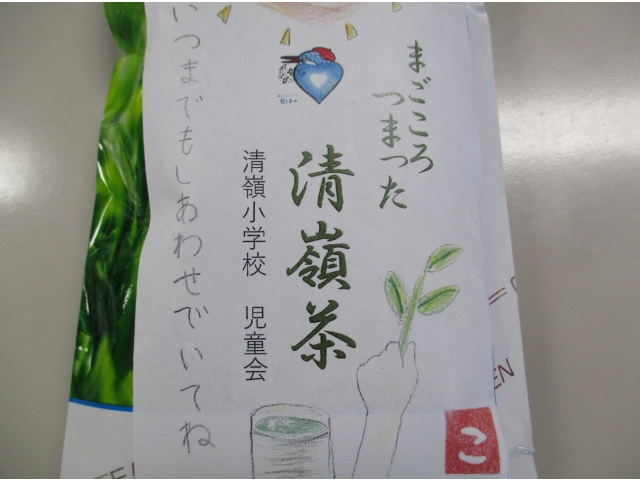 まごころ
つまった
清嶺茶
清嶺小学校 児童会
いつまでもしあわせでいてね
こ